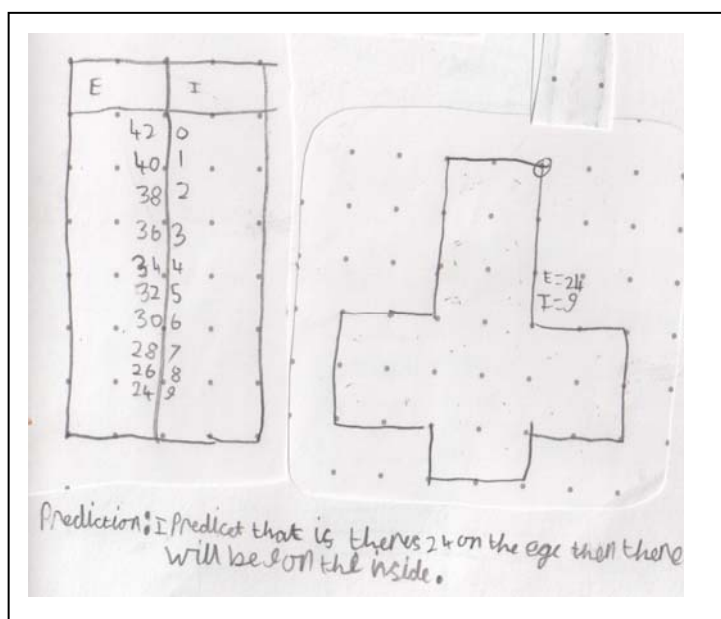 E I
42 0
40 1
38 2
36 3
34 4
32 5
30 6
28 7
26 8
24 9
E=24
I=9
Prediction: I Predict that is theres 24 on the ege then there
will be on the inside.